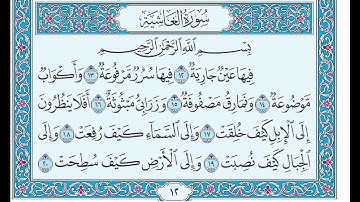 سُورَةُ الغَاشِيَةِ
بِسْمِ اللَّهِ الرَّحْمَٰنِ الرَّحِيمِ
فِيهَا عَيْنٌ جَارِيَةٌ ١٢ فِيهَا سُرُرٌ مَرْفُوعَةٌ ١٣ وَأَكْوَابٌ
مَوْضُوعَةٌ ١٤ وَنَمَارِقُ مَصْفُوفَةٌ ١٥ وَزَرَابِيُّ مَبْثُوثَةٌ ١٦ أَفَلَا يَنْظُرُونَ
إِلَى الْإِبِلِ كَيْفَ خُلِقَتْ ١٧ وَإِلَى السَّمَاءِ كَيْفَ رُفِعَتْ ١٨ وَإِلَى
الْجِبَالِ كَيْفَ نُصِبَتْ ١٩ وَإِلَى الْأَرْضِ كَيْفَ سُطِحَتْ ٢٠
١٢